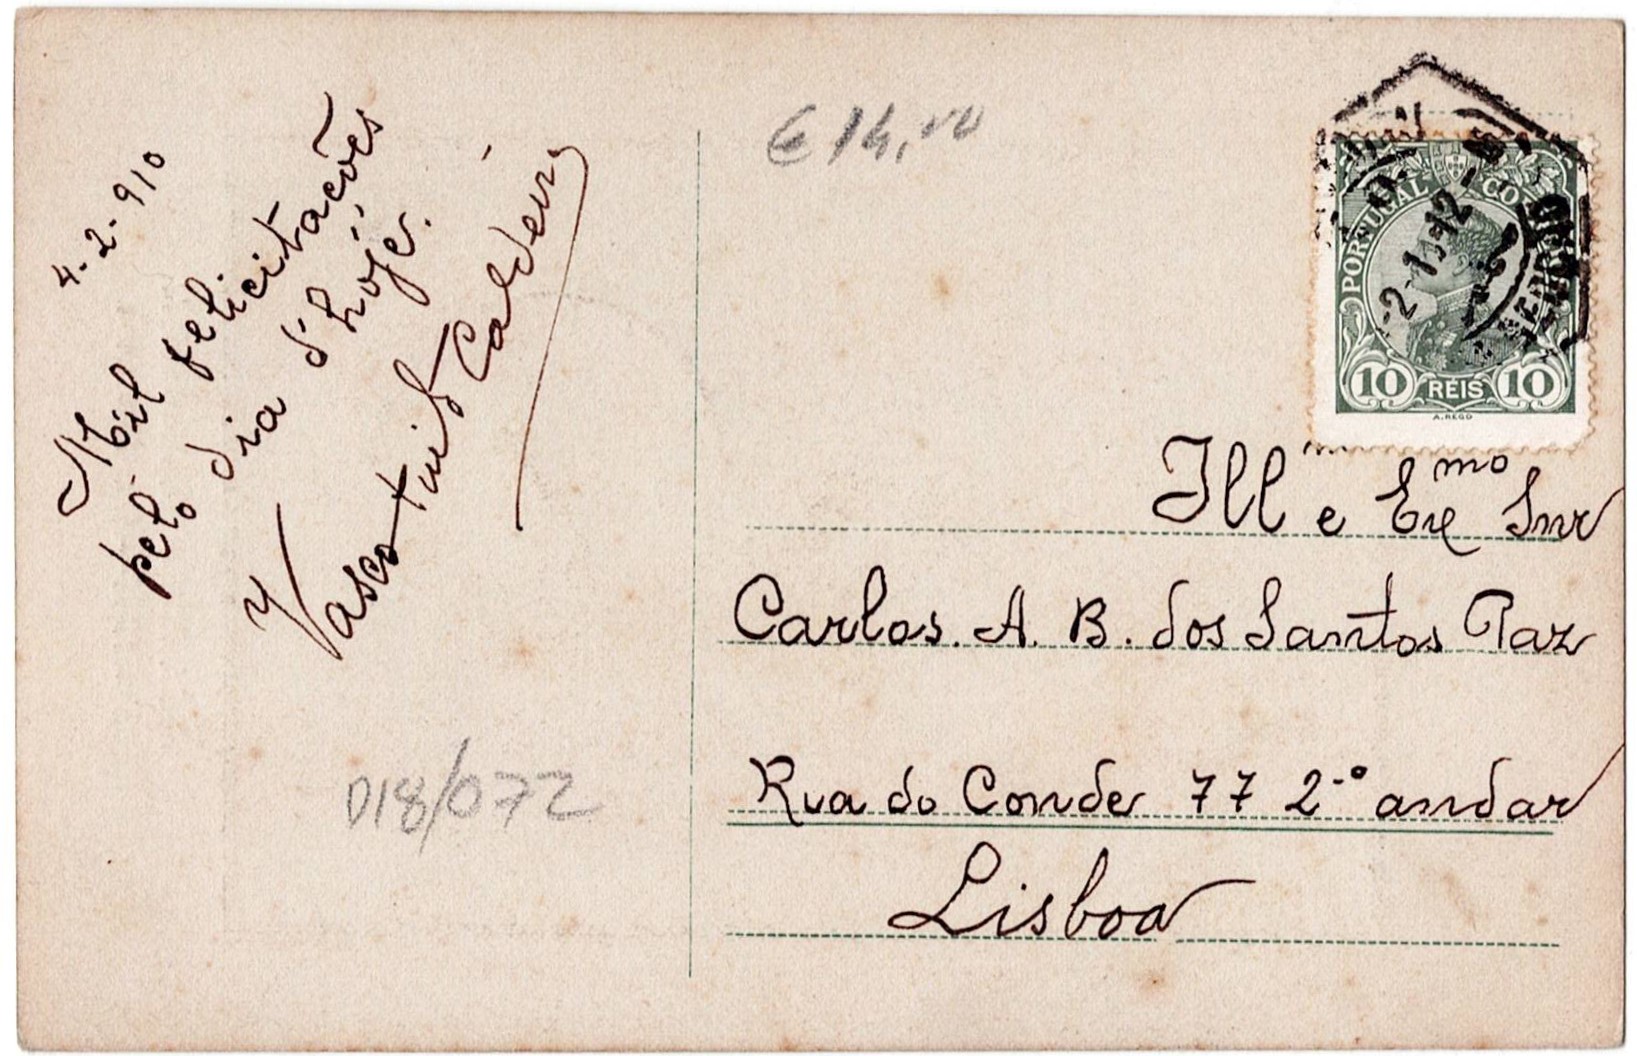 4-2-910
Mil felicitacões
pelo dia d'hoje.
Vasco Caldeira
€ 14,00
D18/072
PORTUGAL CO
-2-
10 REIS 10
A. REGO
Ill e Ex mo Snr
Carlos. A. B. dos Santos Paz
Rua do Conde 77 2-º andar
Lisboa